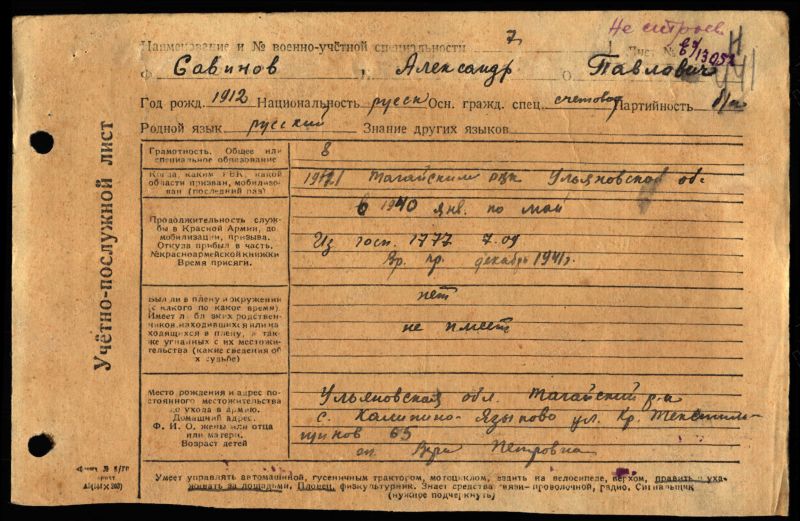 Не строев
Наименование и № военно-учётной специальности 7
Лист №
Ф. Савинов, Александр О. Павлович
Год рожд. 1912 Национальность русск Осн. гражд. спец. счетовод Партийность б/п
Родной язык русский Знание других языков
Учётно-послужной лист
Грамотность. Общее или специальное образование
8
Когда, каким РВК, какой области призван, мобилизован (последний раз)
Тагайским рвк Ульяновской об.
Продолжительность службы в Красной Армии, до мобилизации, призыва. Откуда прибыл в часть. № красноармейской книжки Время присяги.
в 1940 янв. по май
Из госп. 1777 7.09
Вр. пр. декабрь 1941г.
Был ли в плену и окружении (с какого по какое время). Имеет ли близких родственников, находившихся или находящихся в плену, а также угнанных с их местожительства (какие сведения об их судьбе)
нет
не имеет
Место рождения и адрес постоянного местожительства до ухода в армию. Домашний адрес. Ф. И. О. жены или отца или матери. Возраст детей
Ульяновская обл. Тагайский р-н
с. Калинино-Языково ул. Кр. Текстильщиков 65
Вера Петровна
Умеет управлять автомашиной, гусеничным трактором, мотоциклом, ездить на велосипеде, верхом, править и ухаживать за лошадьми. Пловец, физкультурник. Знает средства связи—проволочной, радио. Сигнальщик
(нужное подчеркнуть)